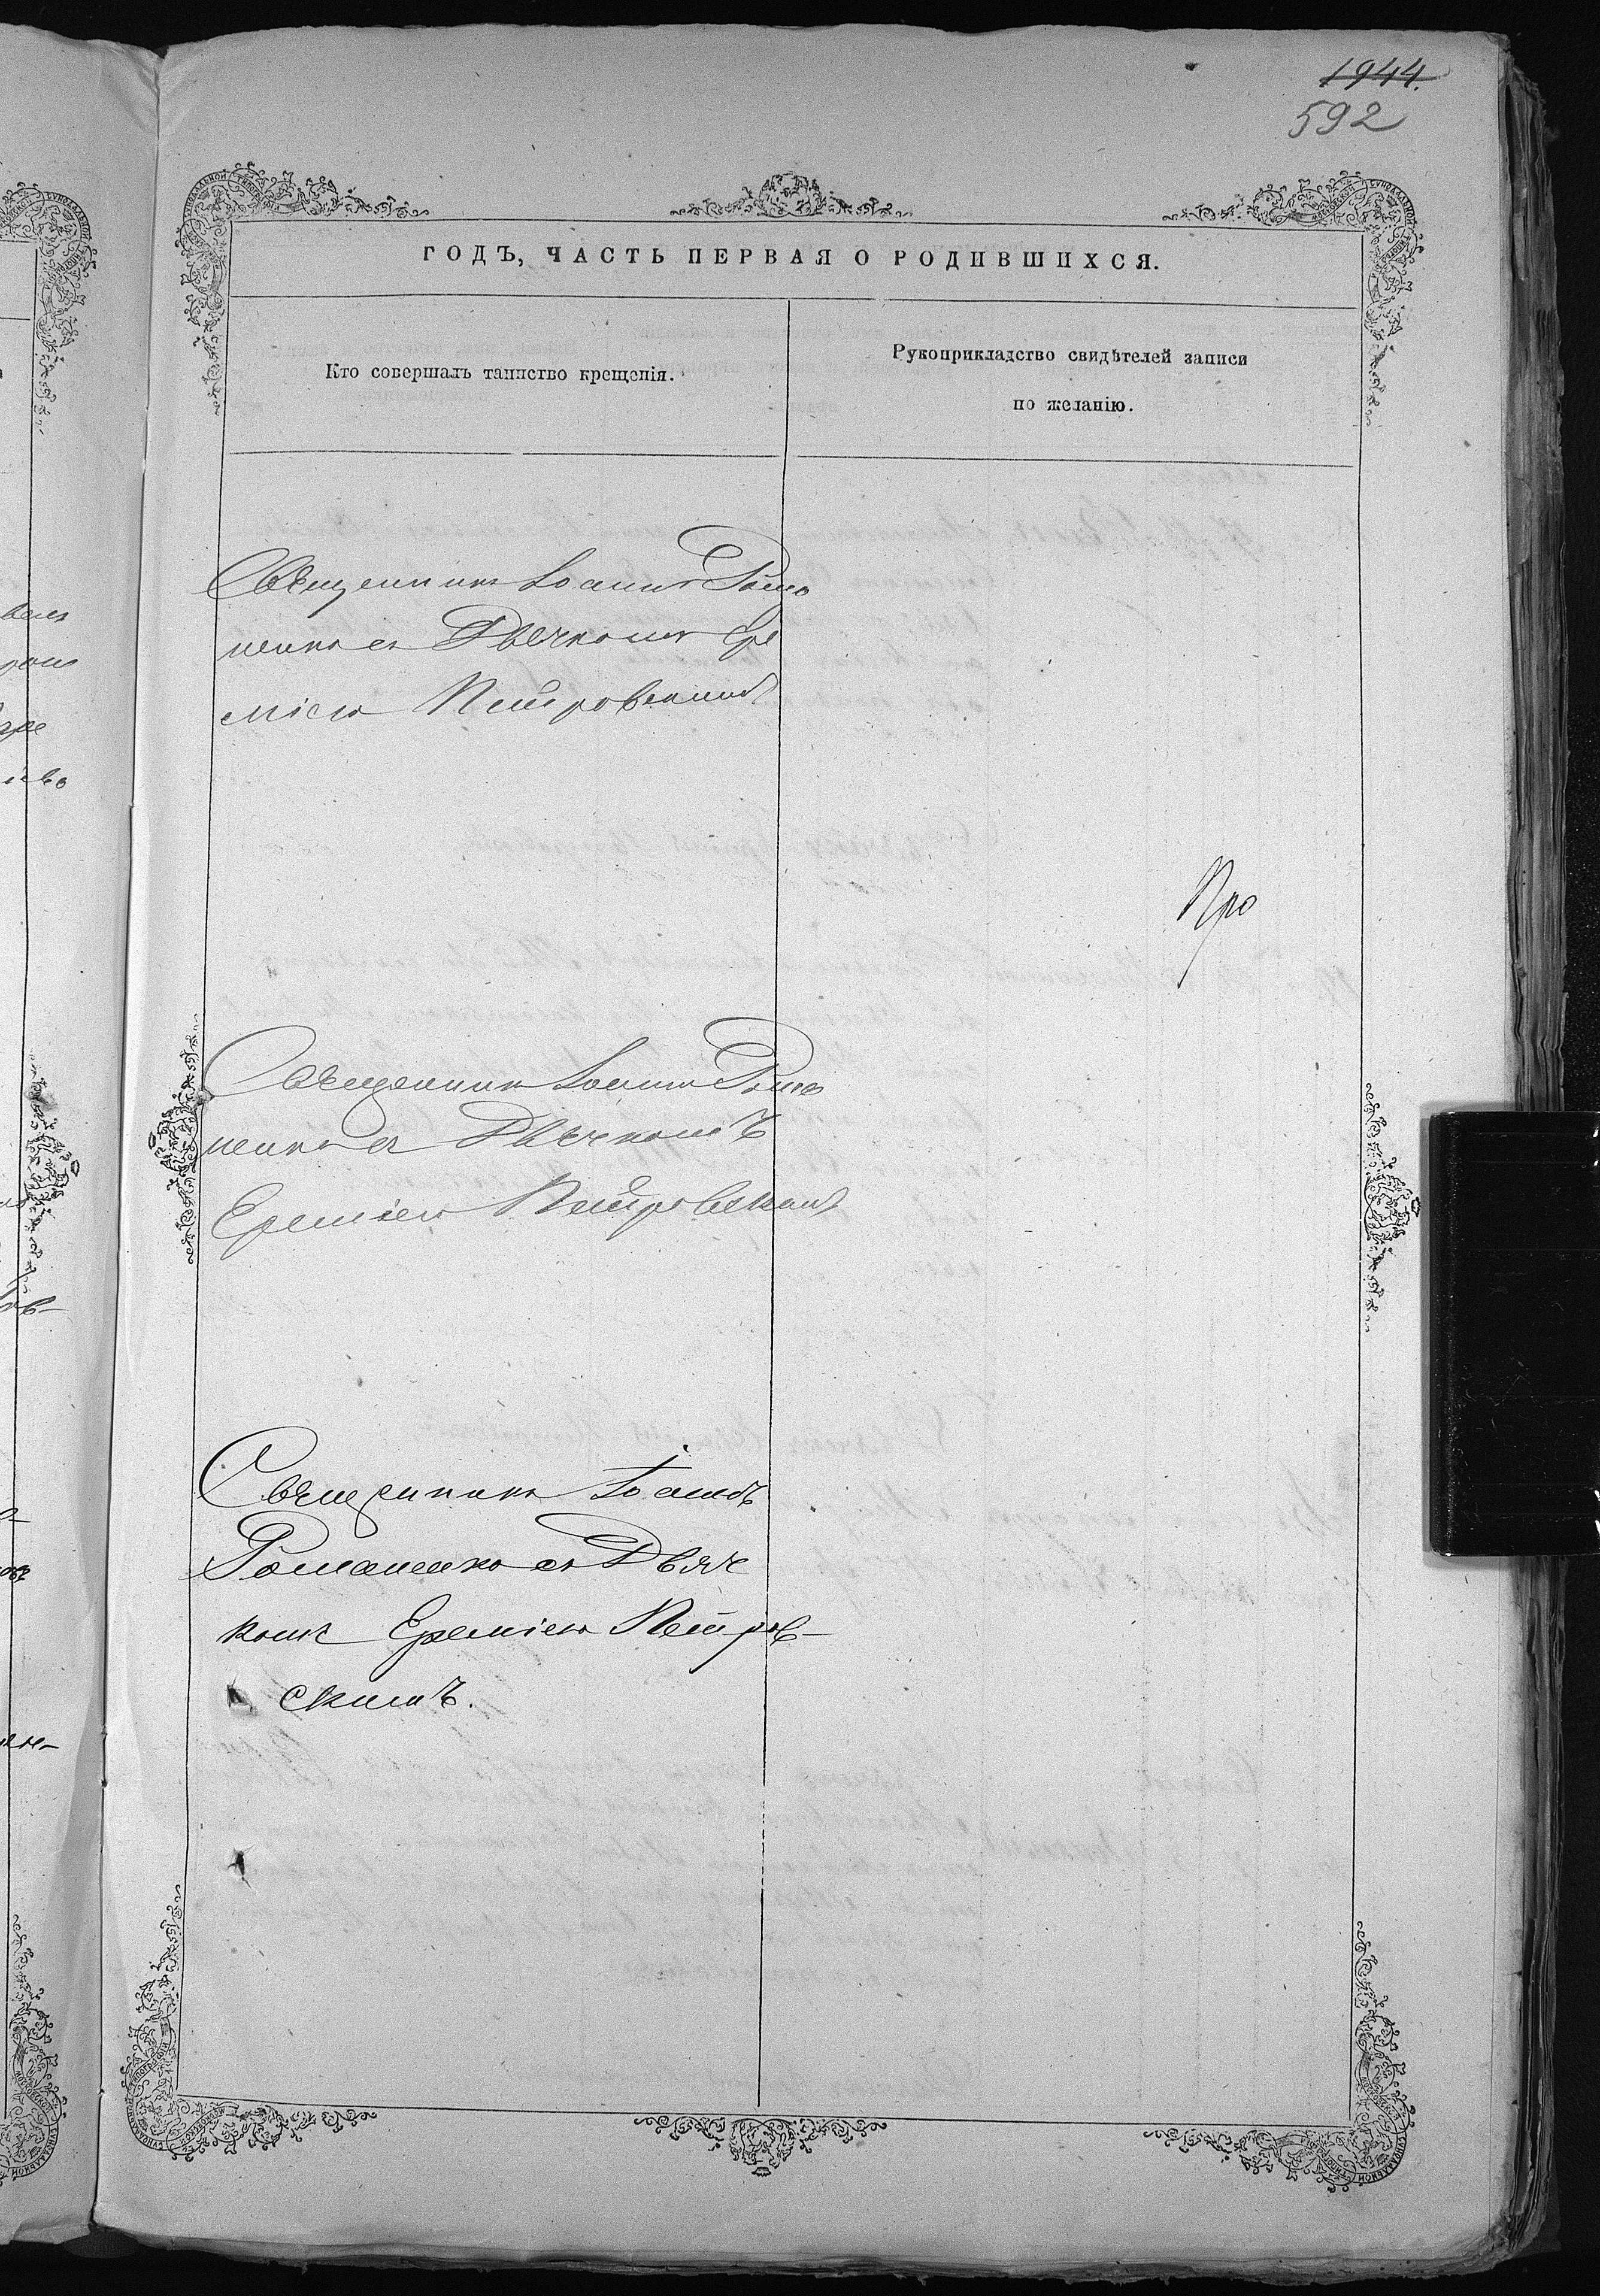 1944.
592
ГОДЪ, ЧАСТЬ ПЕРВАЯ О РОДИВШИХСЯ.
Кто совершалъ таинство крещенія.
Рукоприкладство свидѣтелей записи
по желанію.
Священникъ Іоаннъ Рома
ненко съ Дьячкомъ Ере
міею Петровскимъ
Про
Священникъ Іоаннъ Рома
ненко съ Дьячкомъ
Ереміею Петровскимъ
Священникъ Іоаннъ
Романенко съ Дьяч
комъ Ереміею Петров-
скимъ.